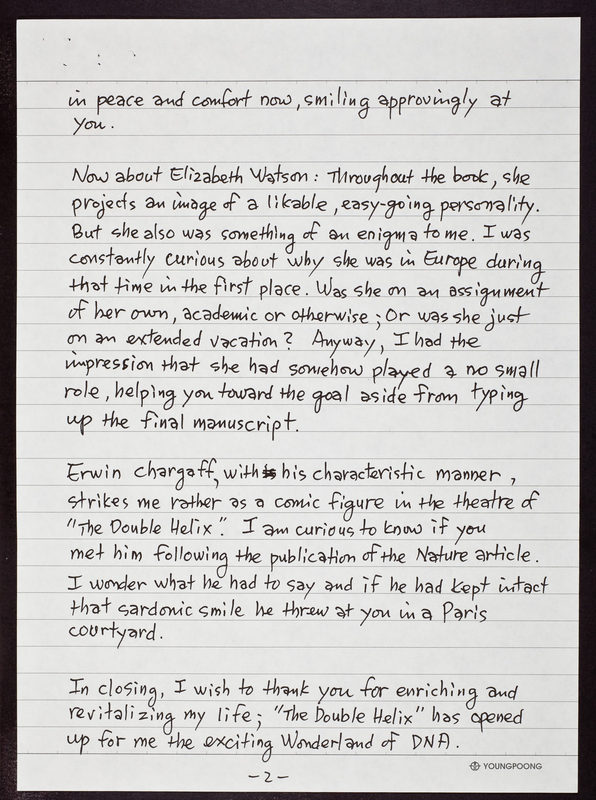 in peace and comfort now, smiling approvingly at
you.
Now about Elizabeth Watson: Throughout the book, she
projects an image of a likable, easy-going personality.
But she also was something of an enigma to me. I was
constantly curious about why she was in Europe during
that time in the first place. Was she on an assignment
of her own, academic or otherwise; Or was she just
on an extended vacation? Anyway, I had the
impression that she had somehow played a no small
role, helping you toward the goal aside from typing
up the final manuscript.
Erwin Chargaff, with his characteristic manner,
strikes me rather as a comic figure in the theatre of
"The Double Helix". I am curious to know if you
met him following the publication of the Nature article.
I wonder what he had to say and if he had kept intact
that sardonic smile he threw at you in a Paris
courtyard.
In closing, I wish to thank you for enriching and
revitalizing my life; "The Double Helix" has opened
up for me the exciting Wonderland of DNA.
-2-
YOUNGPOONG